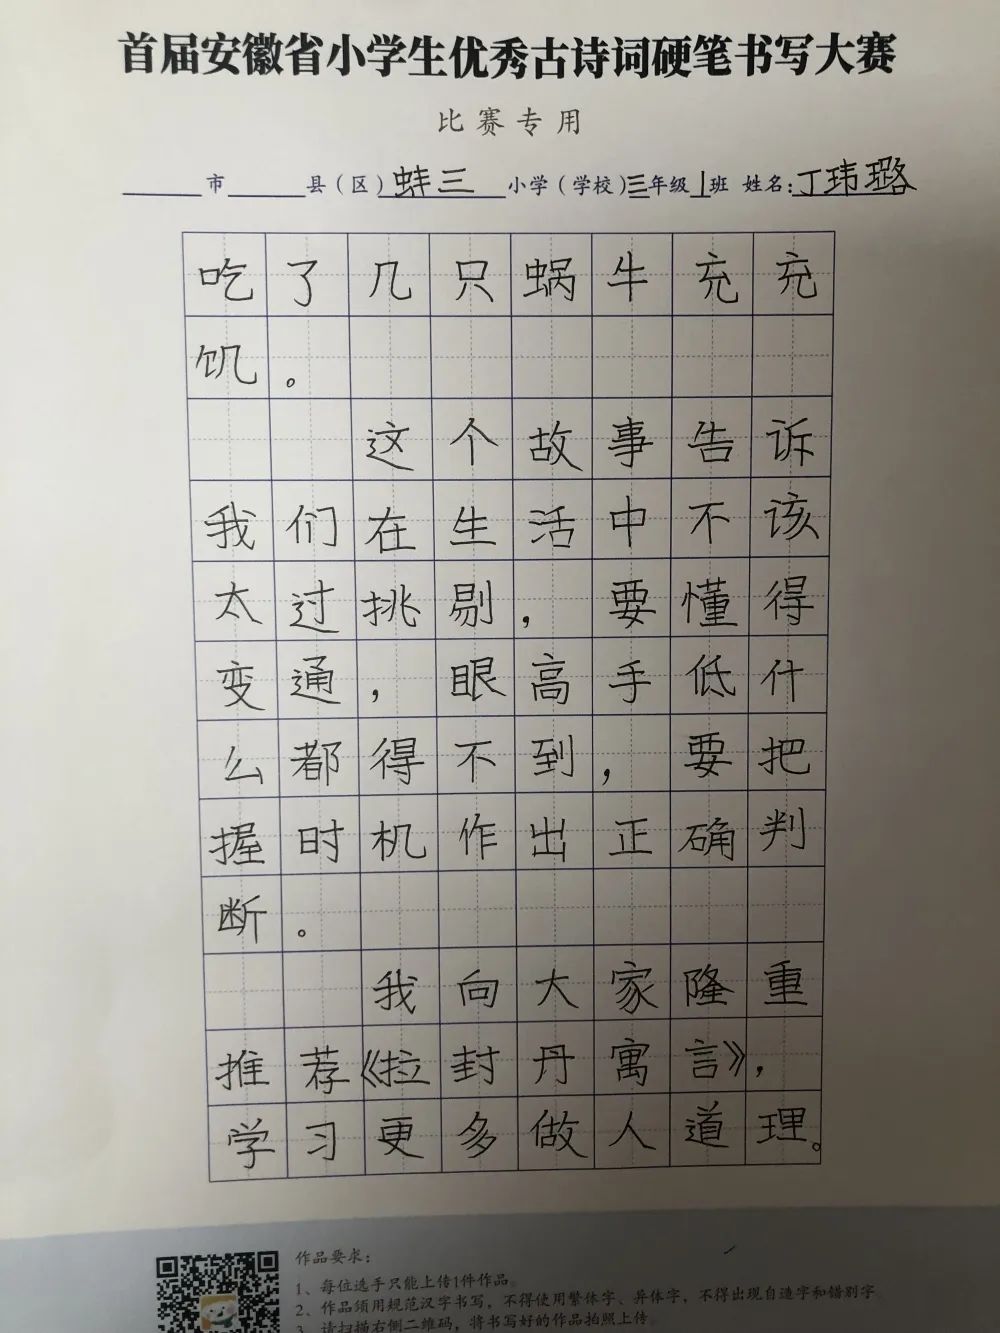 首届安徽省小学生优秀古诗词硬笔书写大赛
比赛专用
市 县（区）蚌三 小学（学校）三年级1班 姓名:丁玮璐
吃了几只蜗牛充充
饥。
这个故事告诉
我们在生活中不该
太过挑剔，要懂得
变通，眼高手低什
么都得不到，要把
握时机作出正确判
断。
我向大家隆重
推荐《拉封丹寓言》，
学习更多做人道理。
作品要求：
1、每位选手只能上传1件作品。
2、作品须用规范汉字书写，不得使用繁体字、异体字，不得出现自造字和错别字。
3、请扫描右侧二维码，将书写好的作品拍照上传。